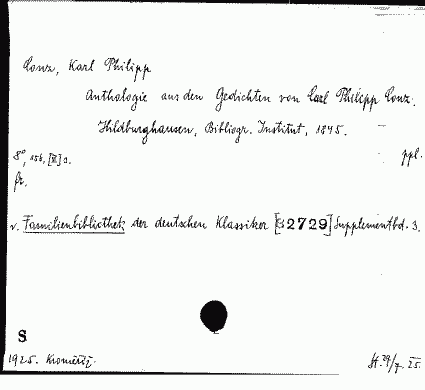 Conz, Karl Philipp
Anthologie aus den Gedichten von Carl Philipp Conz.
Hildburghausen, Bibliogr. Institut, 1845.
8°, 156, [III] s. ppl.
fr.
v. Familienbibliothek der deutschen Klassiker [S 2729] Supplementbd. 3.
S
1925. Kroměříž. 29/7. 25.